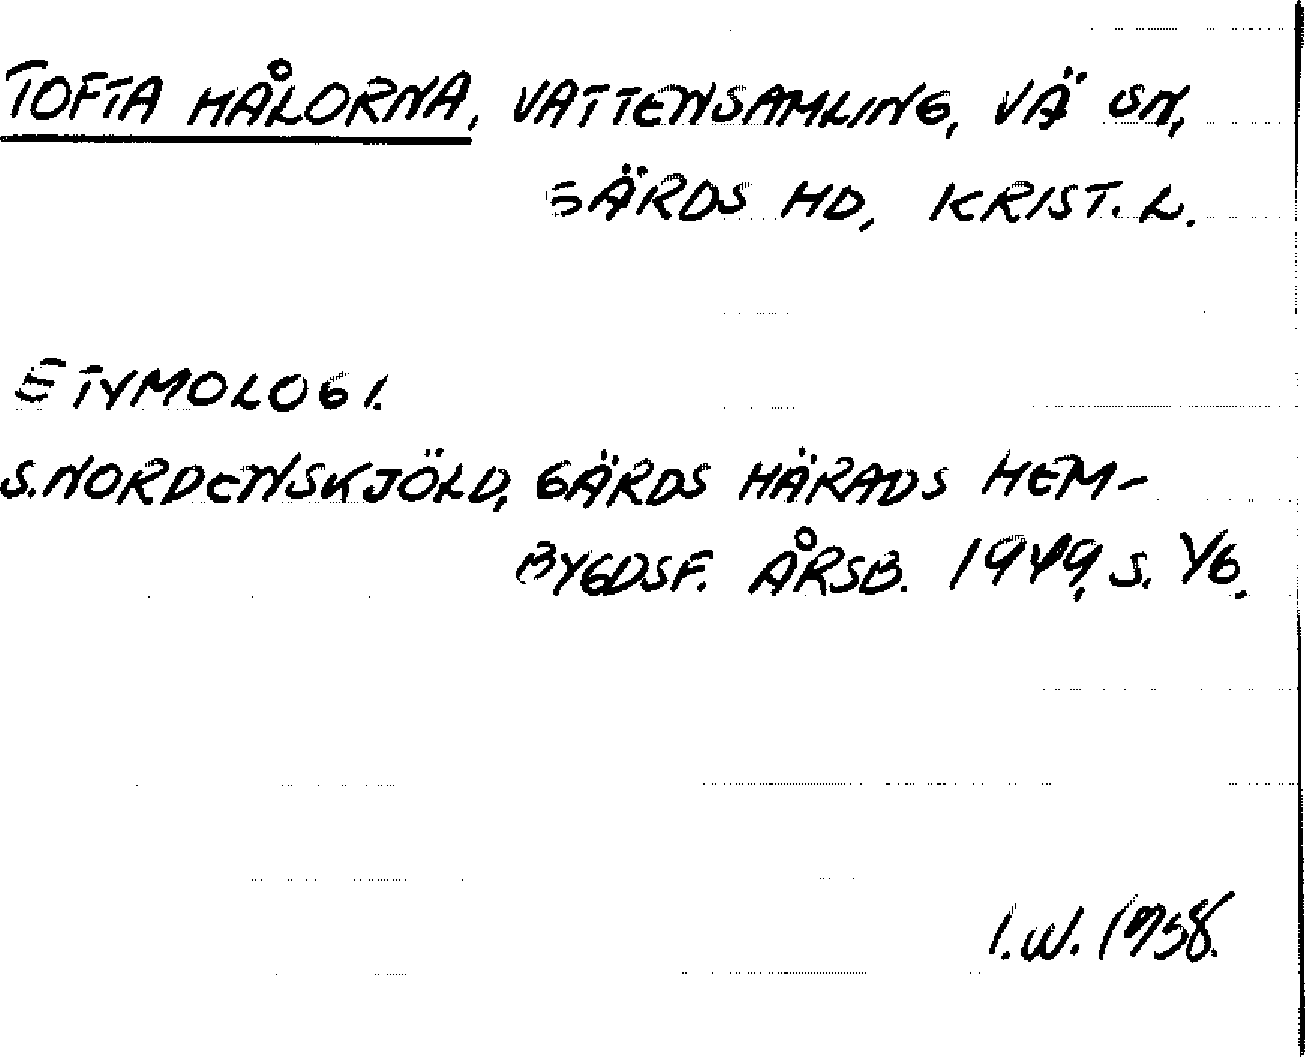 TOFTA HÅLORNA, VATTENSAMLING, VÄ SN,
GÄRDS HD, KRIST. L.
ETYMOLOGI.
S. NORDENSKJÖLD, GÄRDS HÄRADS HEM-
BYGDSF. ÅRSB. 1949, S. 46.
I.W. 1958.